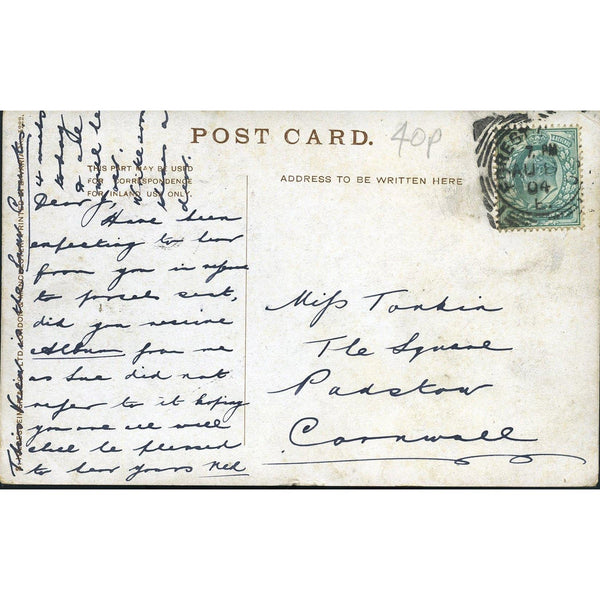 POST CARD.
40p
THIS PART MAY BE USED
FOR CORRESPONDENCE
FOR INLAND USE ONLY
ADDRESS TO BE WRITTEN HERE
FOREST
PM
AU
04
Dear J,
Have been
expecting to hear
from you in
to parcels sent,
did you receive
Album from me
as Sue did not
refer to it hoping
you are all well
shall be pleased
to hear yours Ned
Miss Tonkin
The Square
Padstow
Cornwall
This View is the
today